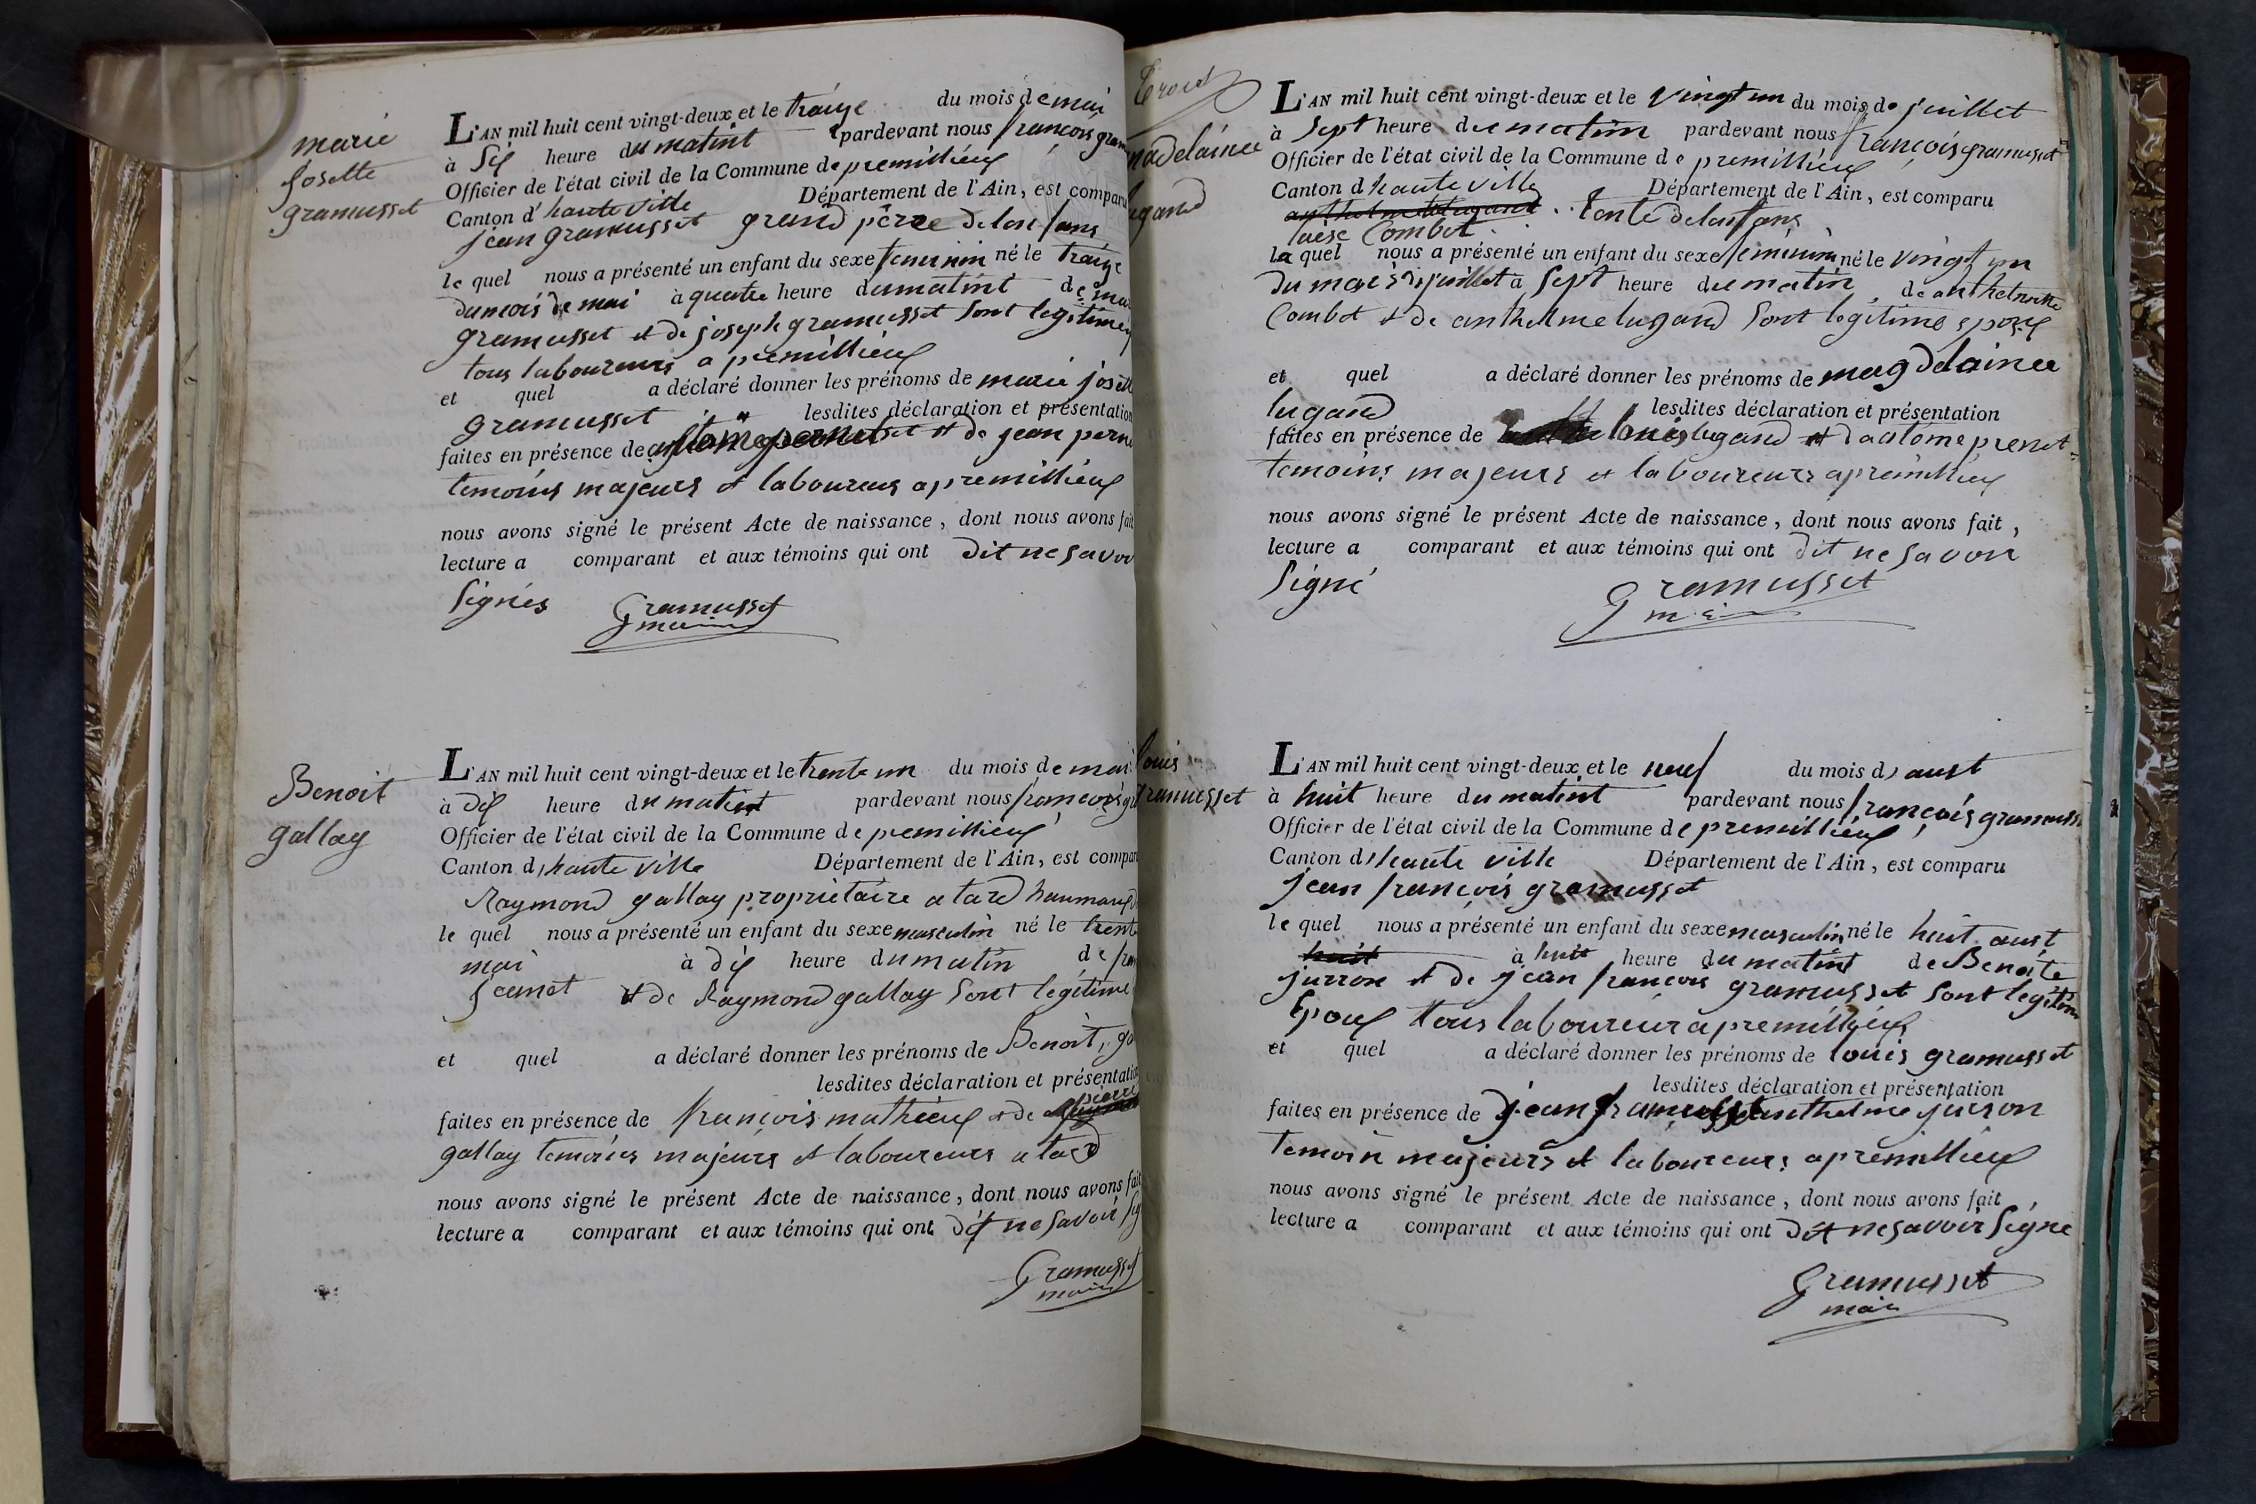 marie
Josette
gramusset
L'AN mil huit cent vingt-deux et le traize du mois de mai
à Six heure du matint pardevant nous françois gram
Officier de l'état civil de la Commune de premillieux
Canton d'hauteville Département de l'Ain, est comparu
jean gramusset grand père de lenfans
le quel nous a présenté un enfant du sexe feminin né le traize
du mois de mai à quatre heure du matint de marie
gramusset et de joseph gramusset sont legitime
tous laboureurs a premillieux
et quel a déclaré donner les prénoms de marie josette
gramusset lesdites déclaration et présentation
faites en présence de et de jean perne
temoins majeurs et laboureurs a premillieux
nous avons signé le présent Acte de naissance, dont nous avons fait
lecture a comparant et aux témoins qui ont dit ne savoir
Signés Gramusset
maire
Benoit
gallay
L'AN mil huit cent vingt-deux et le trente un du mois de mai
à dix heure du matient pardevant nous françois gr
Officier de l'état civil de la Commune de premillieux
Canton d'haute ville Département de l'Ain, est compar
Raymond gallay proprietaire a tard
le quel nous a présenté un enfant du sexe masculin né le trent
mai à dix heure du matin de fran
Jeanet et de Raymond gallay Sont legitime
et quel a déclaré donner les prénoms de Benoit, ga
lesdites déclaration et présentation
faites en présence de françois mathieux et de pierre
gallay temoins majeurs et laboureurs a tard
nous avons signé le présent Acte de naissance, dont nous avons fait
lecture a comparant et aux témoins qui ont dit ne Savoir Sig
Gramusset
maire
madelainee
lugand
L'AN mil huit cent vingt-deux et le vingt un du mois de juillet
à Sept heure du matin pardevant nous françois gramusset
Officier de l'état civil de la Commune de premillieux
Canton d'hauteville Département de l'Ain, est comparu
anthelme lugand tente delanfans
Combet
la quel nous a présenté un enfant du sexe feminin né le vingt un
du mois d juillet à Sept heure du matin de anthelmette
Combet et de anthelme lugand Sont legitime epoux
et quel a déclaré donner les prénoms de magdelainee
lugand lesdites déclaration et présentation
faites en présence de louis lugand et dantome prenet
temoins majeurs et laboureurs a premillieux
nous avons signé le présent Acte de naissance, dont nous avons fait,
lecture a comparant et aux témoins qui ont dit ne savoir
Signé Gramusset
louis
gramusset
L'AN mil huit cent vingt-deux et le neuf du mois d'aust
à huit heure du matint pardevant nous françois gramusse
Officier de l'état civil de la Commune de premillieux
Canton d'haute ville Département de l'Ain, est comparu
jean françois gramusset
le quel nous a présenté un enfant du sexe masculin né le huit aust
huit à huit heure du matint de Benoite
jurron et de jean françois gramusset sont legitime
Epoux tous laboureur a premillieux
et quel a déclaré donner les prénoms de louis gramusset
lesdites déclaration et présentation
faites en présence de jean anthelme juron
temoin majeurs et laboureurs a premillieux
nous avons signé le présent Acte de naissance, dont nous avons fait
lecture a comparant et aux témoins qui ont dit ne savoir signe
Gramusset
maire